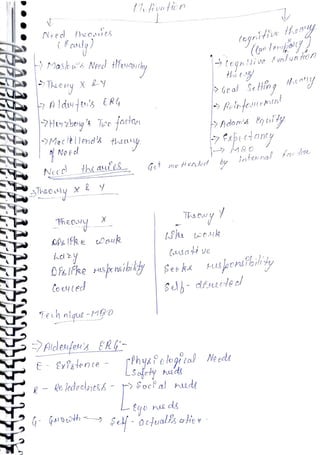 Motivation
Need theories
(Early)
Cognitive theory
(Contemporary)
→ Maslow's Need Hierarchy
→ Theory X & Y
→ Alderfer's ERG
→ Herzberg's Two factor
→ McClelland's theory
of Need
→ Cognitive evaluation
theory
→ Goal Setting theory
→ Reinforcement
→ Adam's Equity
→ Expectancy
→ MBO
Need theories Get motivated by internal factor
→ Theory X & Y
Theory X
Dislike work
Lazy
Dislike responsibility
Coerced
Theory Y
Like work
Creative
Seeks responsibility
Self-directed
Technique-MBO
⇒ Alderfer's ERG:-
E - Existence - Physiological Needs
Safety needs
R - Relatedness - → Social needs
Ego needs
G- Growth → Self-actualisation